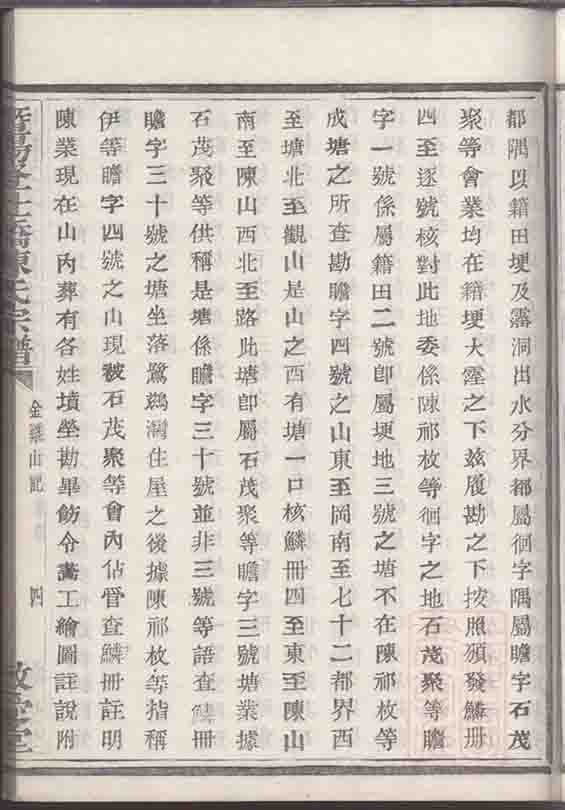 都隅以籍田埂及霤洞出水分界都屬徊字隅屬瞻字石茂
聚等會業均在籍埂大霪之下兹履勘之下按照頒發鱗册
四至逐號核對此地委係陳祁枚等徊字之地石茂聚等瞻
字一號係屬籍田二號卽屬埂地三號之塘不在陳祁枚等
成塘之所查勘瞻字四號之山東至岡南至七十二都界西
至塘北至觀山是山之西有塘一口核鱗冊四至東至陳山
南至陳山西北至路此塘卽屬石茂聚等瞻字三號塘業據
石茂聚等供稱是塘係瞻字三十號並非三號等語查鱗冊
瞻字三十號之塘坐落鷺鷀灣住屋之後據陳祁枚等指稱
伊等瞻字四號之山現被石茂聚等會內佔管查鱗冊註明
陳業現在山內葬有各姓墳塋勘畢飭令畫工繪圖註說附
橋陳氏宗譜
金雞山記
四